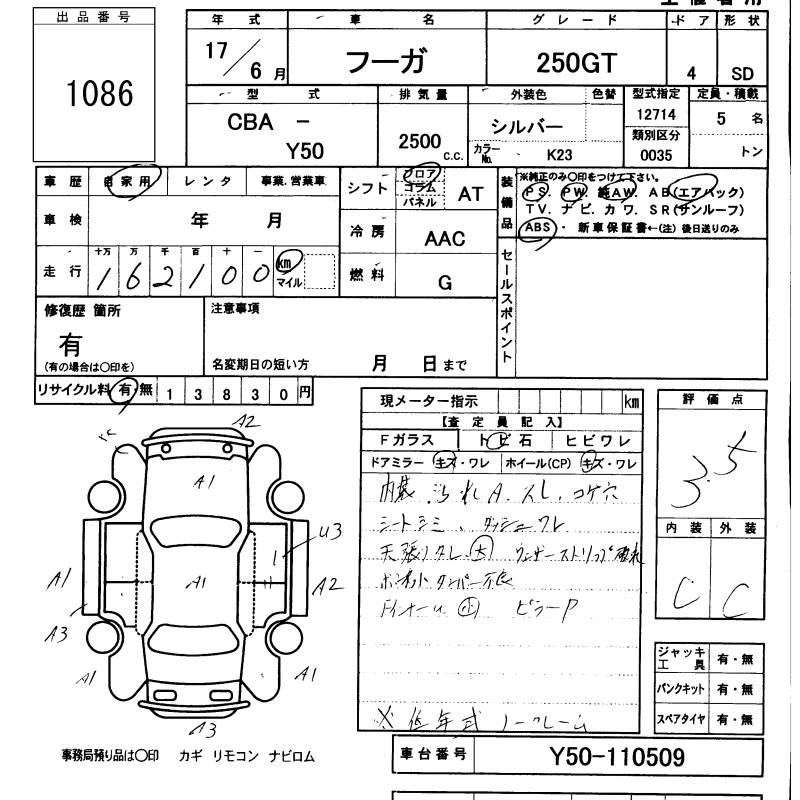 出品番号
1086
年式
17/6月
車名
フーガ
グレード
250GT
ドア
4
形状
SD
型式
CBA -
Y50
排気量
2500
c.c.
外装色
色替
シルバー
カラーNo.
K23
型式指定
12714
類別区分
0035
定員・積載
5 名
トン
車歴
自家用
レンタ
事業.営業車
車検
年 月
走行
十万 万 千 百 十 一
162100
km
マイル
シフト
フロア
コラム
パネル
AT
冷房
AAC
燃料
G
装備品
※純正のみ〇印をつけて下さい。
PS. PW. 純AW. AB(エアバック)
TV. ナビ. カワ. SR(サンルーフ)
ABS ・ 新車保証書←(注) 後日送りのみ
セールスポイント
修復歴 箇所
有
(有の場合は〇印を)
注意事項
名変期日の短い方 月 日まで
リサイクル料 有・無 13830円
現メーター指示 km
【査定員記入】
Fガラス
トビ石
ヒビワレ
ドアミラー キズ・ワレ
ホイール(CP) キズ・ワレ
内装 汚れ A. スレ. コゲ穴
シートシミ、ダッシュワレ
天張りタレ(大) ウェザーストリップ破れ
ボンネットダンパー不良
ドインナーu (小) ピラーP
※低年式 ノークレーム
評価点
3.5
内装
外装
C
C
ジャッキ工具 有・無
パンクキット 有・無
スペアタイヤ 有・無
A2
A1
U3
A1
A1
A2
A3
A1
A1
A3
事務局預り品は〇印 カギ リモコン ナビロム
車台番号
Y50-110509